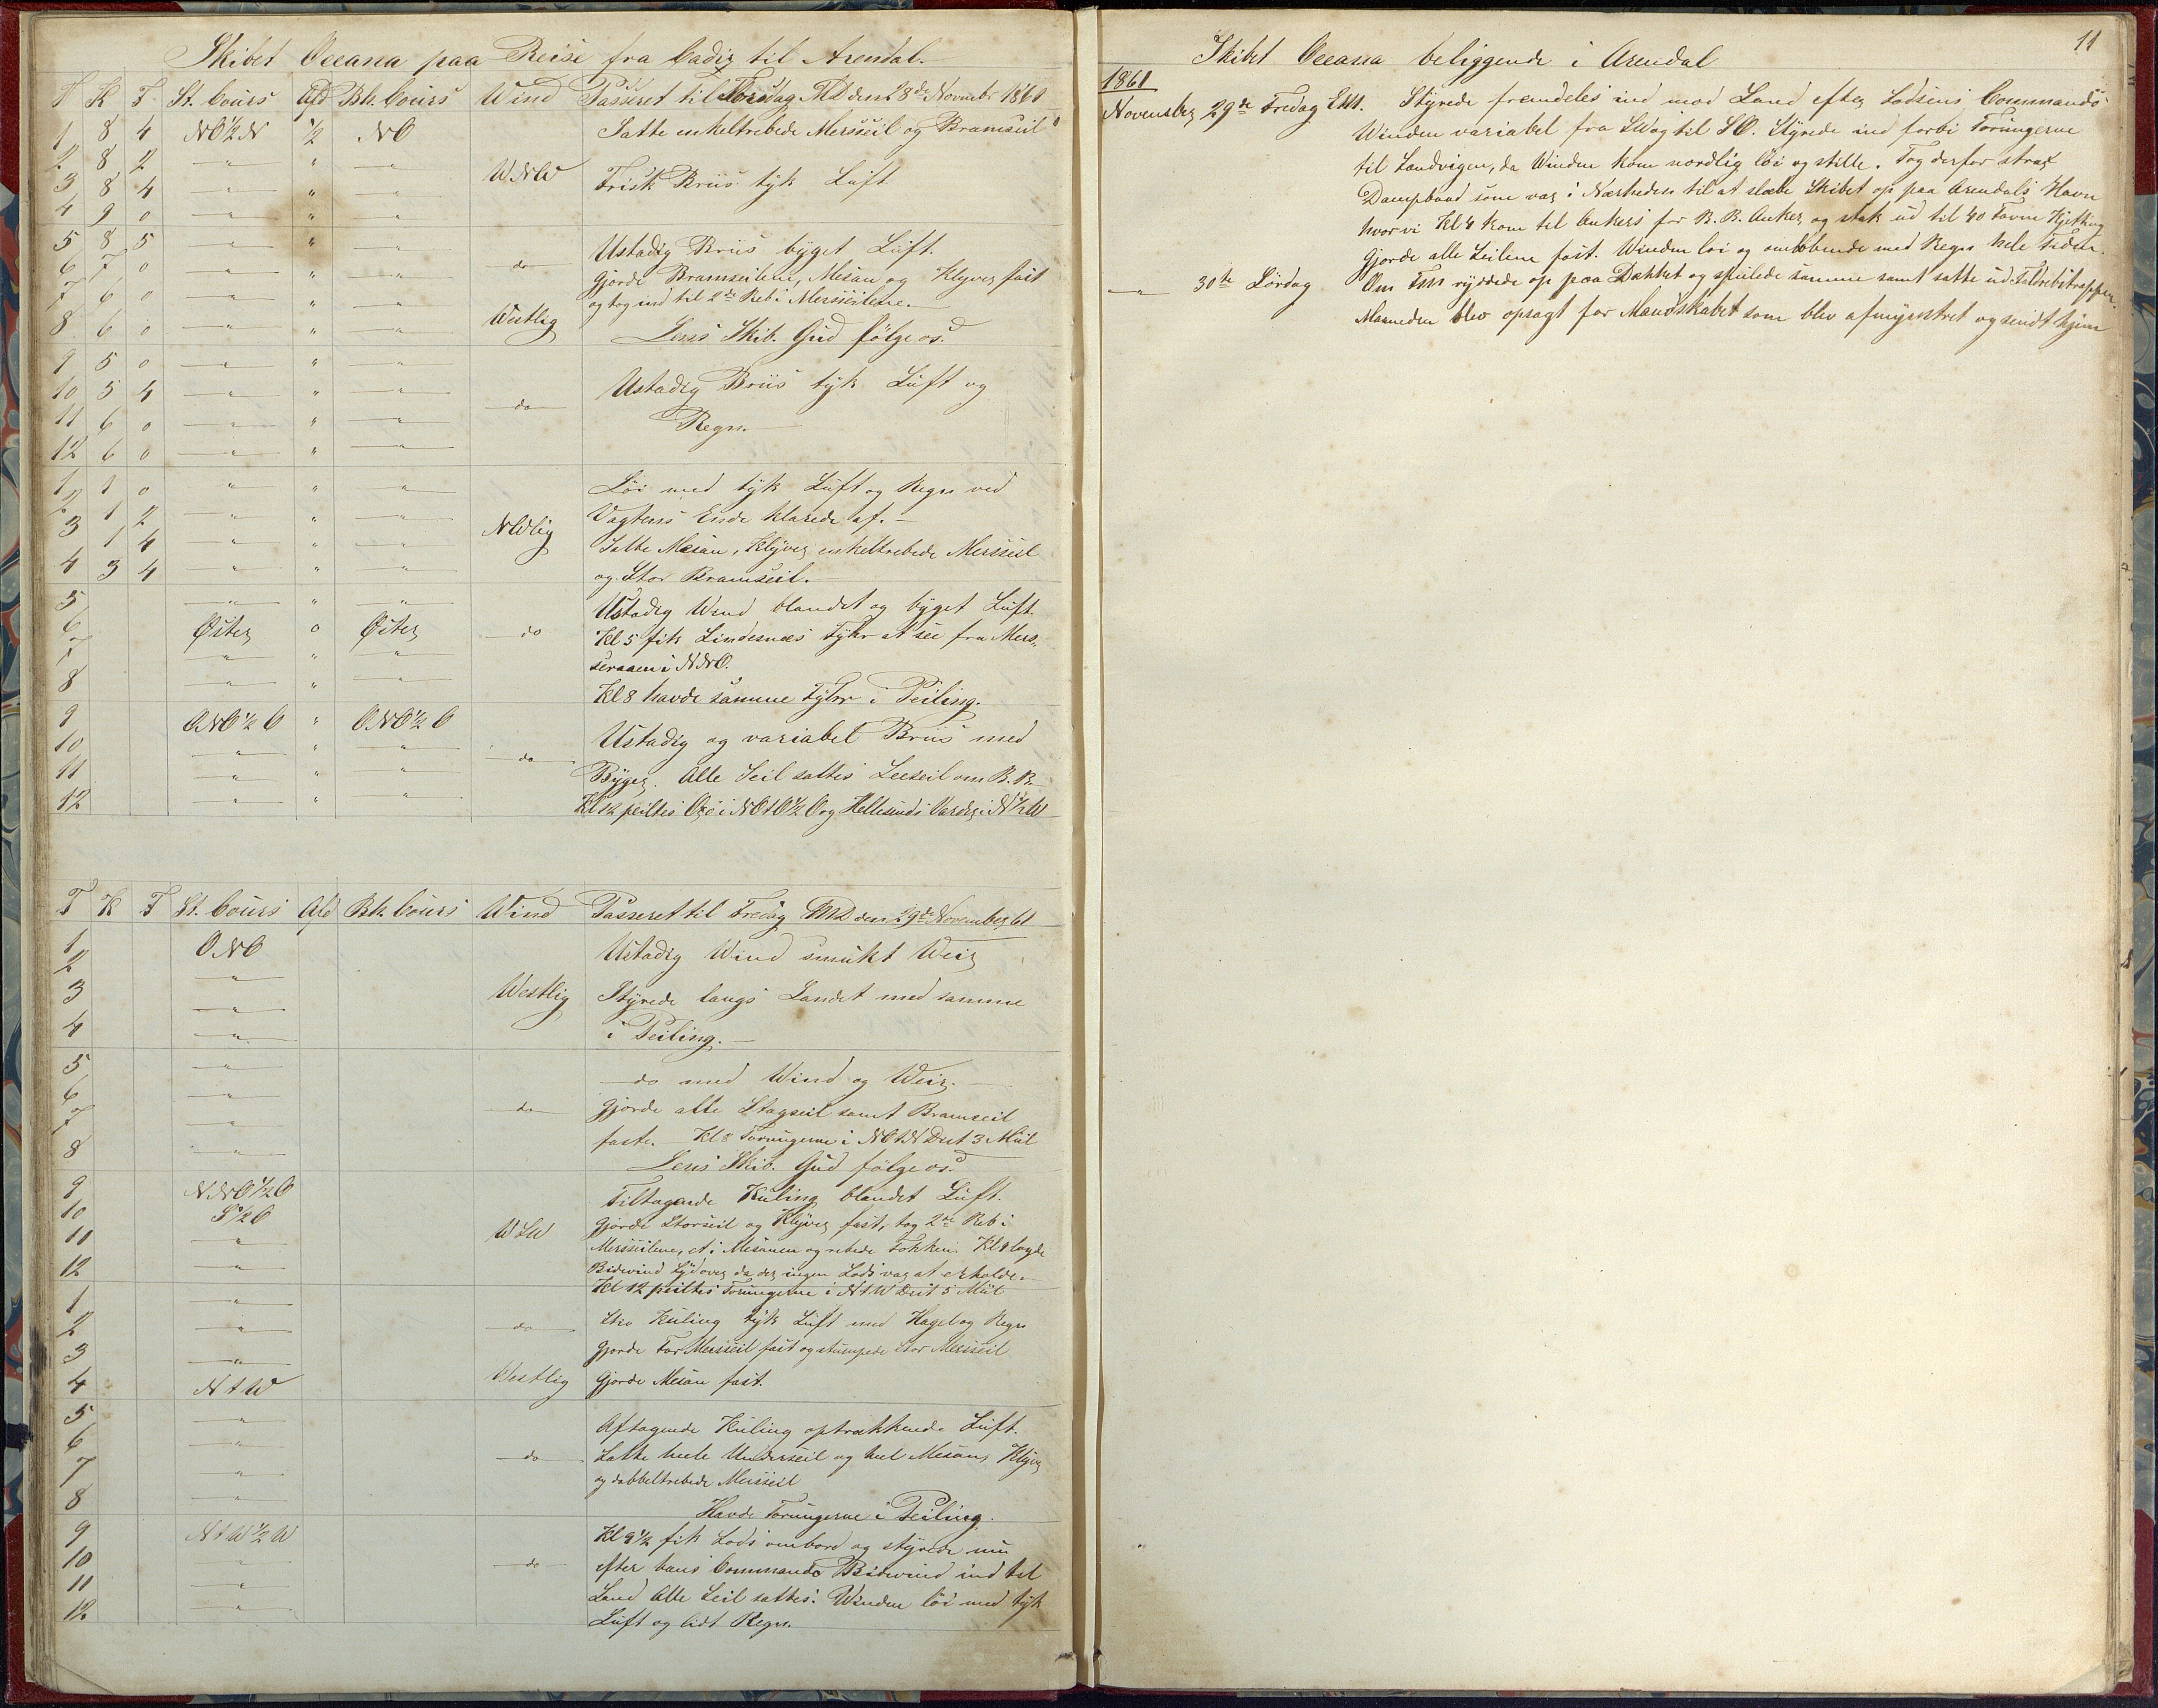 Skibet Oceana paa Reise fra Cadiz til Arendal.
T K F St. Cours Afd Bk. Cours Wind Passeret til Torsdag MD den 28de Novembr 1861
1 8 4 NO½N ½ NO Satte enkeltrebede Mersseil og Bramseil
2 8 2 " " "
3 8 4 " " " WNW Frisk Briis tyk Luft
4 9 0 " " "
5 8 5 " " " Ustadig Briis byget Luft.
6 7 0 " " " do Gjorde Bramseilene, Mesan og Klyver fast
7 6 0 " " " og tog ind til 2de Reb i Mersseilene.
8 6 0 " " " Westlig Lens Skib. Gud følge os.
9 5 0 " " "
10 5 4 " " " Ustadig Briis tyk Luft og
11 6 0 " " " do Regn.
12 6 0 " " "
1 1 0 " " " Löi med tyk Luft og Regn ved
2 1 2 " " " Vagtens Ende klarede af. —
3 1 4 " " " NWlig Satte Mesan, Klyver enkeltrebede Mersseil
4 3 4 " " " og Stor Bramseil.
5 " " " Ustadig Wind blandet og byget Luft.
6 Øster 0 Øster do Kl 5 fik Lindesnæs Fyhr at see fra Mers-
7 " " " seraaen i NNO.
8 " " " Kl 8 havde samme Fyhr i Peiling.
9 ONO½O " ONO½O Ustadig og variabel Briis med
10 " " " do
11 " " " Byger. Alle Seil sattes Leeseil om B.B.
12 " " " Kl 12 peiltes Oxö i NOtO½O og Hellesunds Varder i N½W
T K F St. Cours Afd Bk. Cours Wind Passeret til Fredag MD den 29de November 61
1 ONO Ustadig Wind smukt Veir
2 "
3 " Westlig Styrede langs Landet med samme
4 " i Peiling. —
5 " do med Wind og Veir. —
6 " do Gjorde alle Stagseil samt Bramseil
7 " faste. — Kl 8 Torungerne i NOtN Dist 3 Miil
8 " Lens Skib. Gud følge os.
9 NNO½O Tiltagende Kuling blandet Luft.
10 S½O Gjorde Storseil og Klyver fast, tog 2de Reb i
11 " WSW Mersseilene, et i Mesanen og rebede Fokken. Kl 9 lagde
12 " Bidevind Sydover da der ingen Lods var at erholde.
Kl 12 peiltes Torungerne i NtW Dist 5 Miil
1 "
2 " do Stiv Kuling tyk Luft med Hagel og Regn
3 " Gjorde For Mersseil fast og stumpede Stor Mersseil
4 NtW Westlig Gjorde Mesan fast.
5 " Aftagende Kuling optrækkende Luft.
6 " do Satte hele Underseil og heel Mesan, Klyver
7 " og dobbeltrebede Mersseil
8 " Havde Torungerne i Peiling.
9 NtW½W Kl 9½ fik Lods ombord og styrede nu
10 " do efter hans Commando Bidevind ind til
11 " Land Alle Seil sattes. Winden löi med tyk
12 " Luft og lidt Regn.
11
Skibet Oceana beliggende i Arendal
1861
November 29de Fredag EM. Styrede fremdeles ind mod Land efter Lodsens Commando
Winden variabel fra SW og til SO. Styrede ind forbi Torungerne
til Sandvigen, da Winden kom nordlig löi og stille. Tog derfor strax
Dampbaad som var i Nærheden til at slæbe Skibet op paa Arendals Havn
hvor vi Kl 4 kom til Ankers for B.B. Anker og stak ud til 40 Favne Kjetting
Gjorde alle Seilene fast. Winden löi og omlöbende med Regn hele Tiden.
" 30te Lördag Om FM ryddede op paa Dækket og spulede samme samt satte ud Faldrebstrappen.
Maaneden blev opsagt for Mandskabet som blev afmynstret og sendt hjem